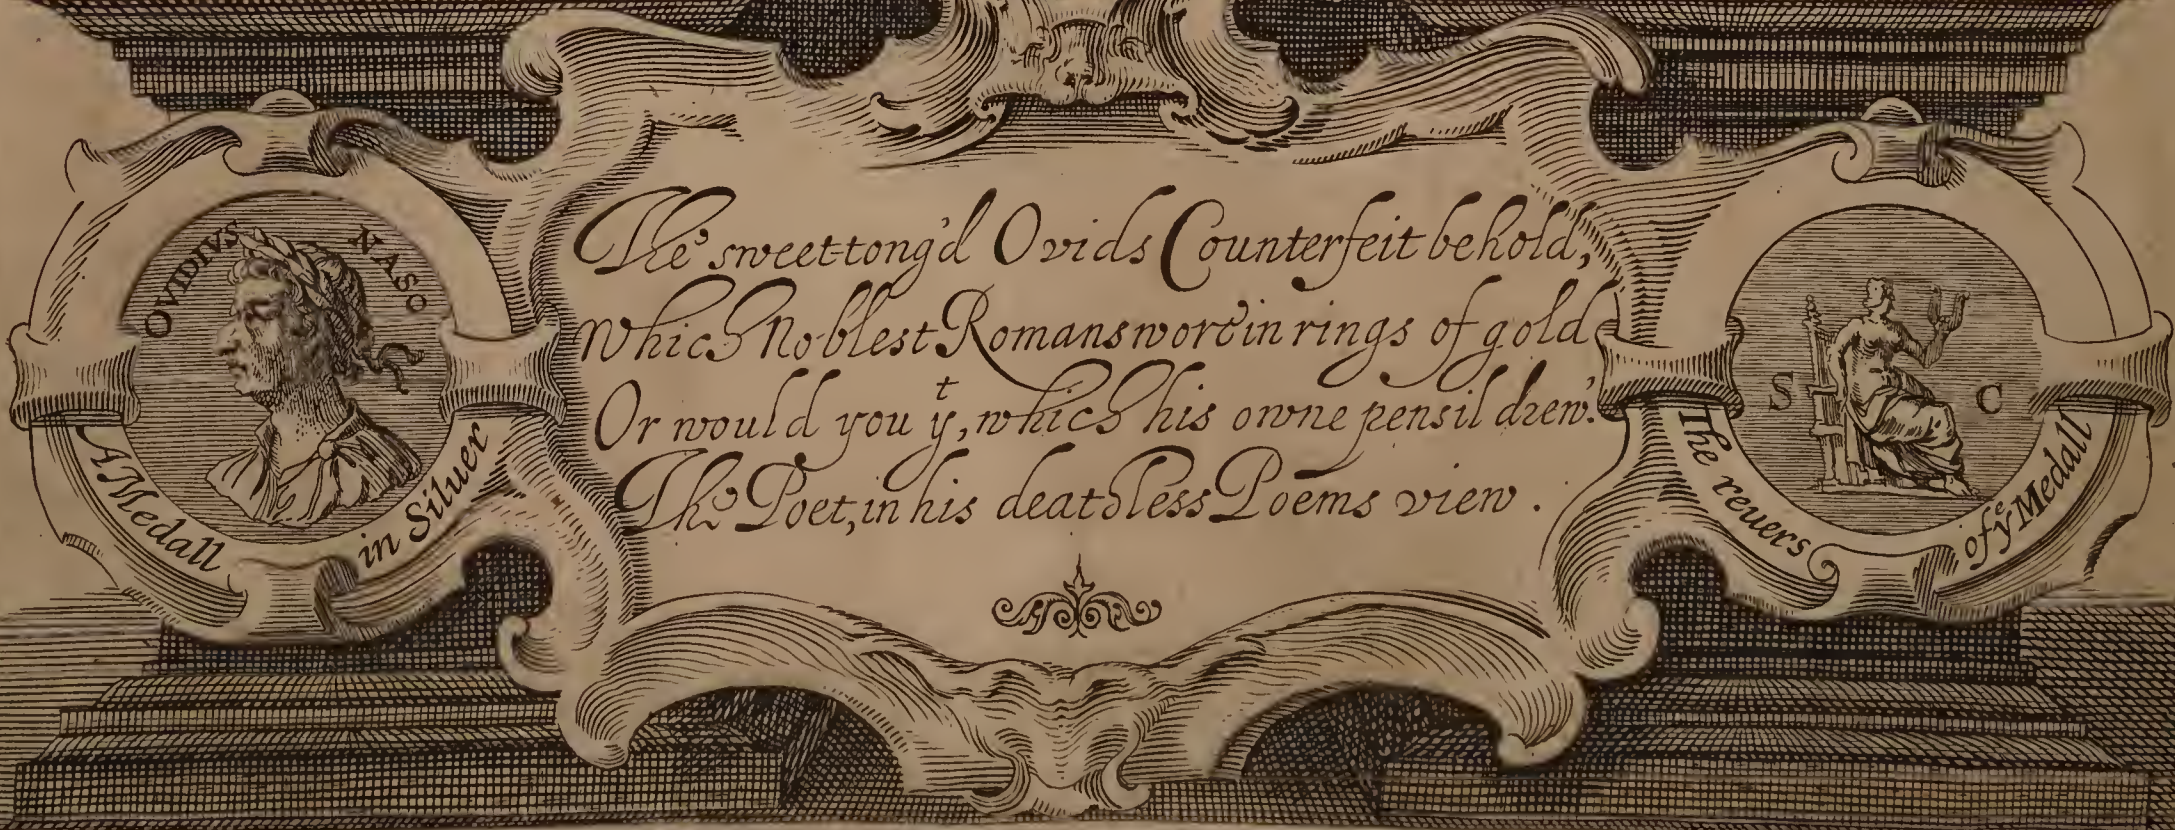 OVIDIVS NASO
A Medall in Siluer
The sweet-tong'd Ovids Counterfeit behold,
Which Noblest Romans wore in rings of gold
Or would you yᵗ, which his owne pensil drew:
The Poet, in his deathless Poëms view.
S C
The reuers of yᵉ Medall